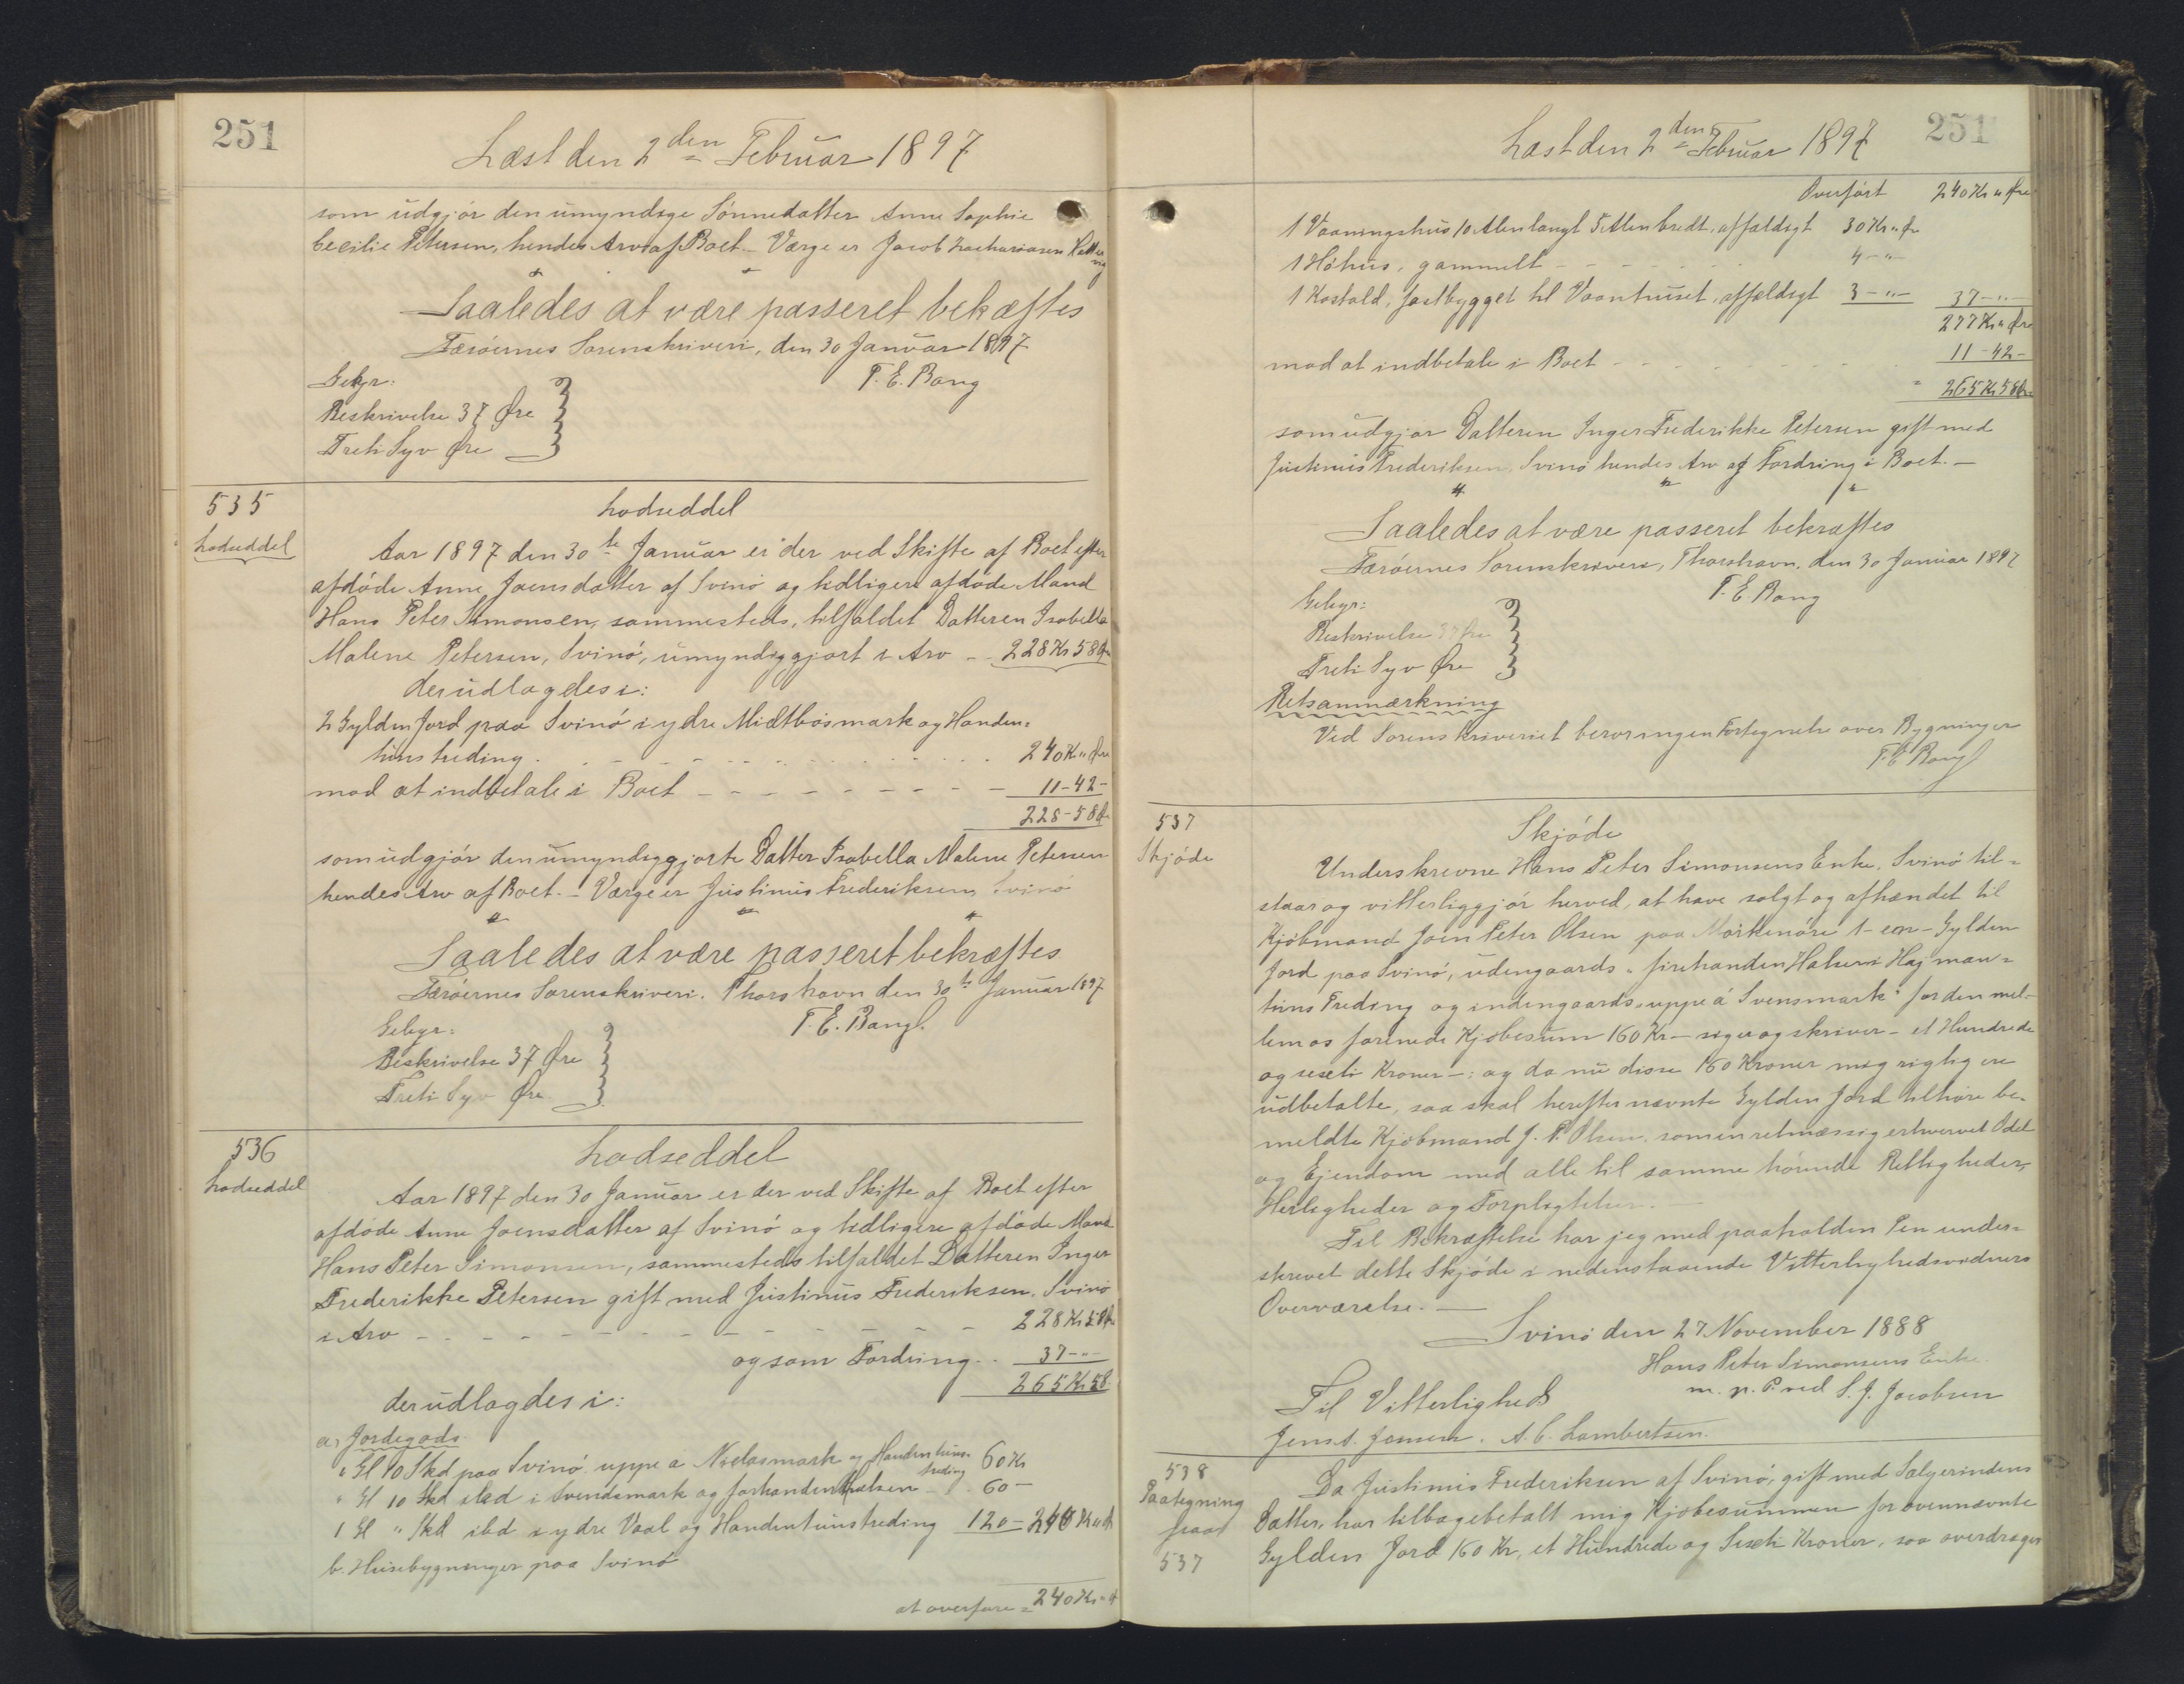 251
Læst den 2den Februar 1897
som udgjör den umyndige Sönnedatter Anne Sophie
Cecilie Petersen, hendes Arv af Boet. Værge er Jacob Zachariasen
Saaledes at være passeret bekæftes
Færöernes Sorenskriveri, den 30 Januar 1897
Gebyr: T. E. Bang
Beskrivelse 37 Øre
Treti Syv Øre
535
Lodseddel
Lodseddel
Aar 1897 den 30te Januar er der ved Skifte af Boet efter
afdöde Anne Joensdatter af Svinö og tidligere afdöde Mand
Hans Peter Simonsen, sammesteds, tilfaldet Datteren Isabella
Malene Petersen, Svinö, umyndiggjort i Arv - - 228 Kr 58 Øre
der udlagdes i:
2 Gylden Jord paa Svinö i ydre Midtbösmark og Handen-
tuns treding - - - 240 Kr " Øre
mod at indbetale i Boet - - - 11 - 42 -
228 - 58 Ø
som udgjör den umyndiggjorte Datter Isabella Malene Petersen
hendes Arv af Boet. - Værge er Justinus Frederiksen, Svinö
Saaledes at være passeret bekræftes
Færöernes Sorenskriveri. Thorshavn den 30te Januar 1897
Gebyr: T. E. Bang.
Beskrivelse 37 Øre
Treti Syv Øre.
536
Lodseddel
Lodseddel
Aar 1897 den 30 Januar er der ved Skifte af Boet efter
afdöde Anne Joensdatter af Svinö og tidligere afdöde Mand
Hans Peter Simonsen, sammesteds tilfaldet Datteren Inger
Frederikke Petersen gift med Justinus Frederiksen, Svinö
i Arv - - - 228 Kr 58 Ø
og som Fordring - - 37 - " -
265 Kr 58
der udlagdes i:
a, Jordegods
" Gl 10 Skd paa Svinö uppe a Nielasmark og Handentuns- treding 60 Kr
" Gl 10 Skd ibd i Svendsmark og forhanden Halsen - 60 -
1 Gl " Skd ibd i ydre Vaal og Handentunstreding 120 - 240 Kr " Ø
b. Husebygninger paa Svinö
at overföre = 240 Kr " Ø
251
Læst den 2den Februar 1897
Overfört 240 Kr " Øre
1 Vaaningshus 10 Alen langt 5 Alen bredt, affældigt 30 Kr " Ø
1 Höhus, gammelt - - - 4 - " -
1 Kostald, fastbygget til Vaanhuset, affældigt 3 - " - 37 - " -
277 Kr " Øre
mod at indbetale i Boet - - - 11 - 42 -
= 265 Kr 58 Ø
som udgjör Datteren Inger Frederikke Petersen gift med
Justinus Frederiksen, Svinö hendes Arv og Fordring i Boet. -
Saaledes at være passeret bekræftes
Færöernes Sorenskriveri, Thorshavn, den 30 Januar 1897
Gebyr: T. E. Bang
Beskrivelse 37 Øre
Treti Syv Øre
Retsanmærkning
Ved Sorenskriveriet beror ingen Fortegnelse over Bygninger
T. E. Bang
537
Skjöde
Skjöde
Underskrevne Hans Peter Simonsens Enke, Svinö til-
staar og vitterliggjör herved, at have solgt og afhændet til
Kjöbmand Joen Peter Olsen paa Norkenöre 1 - een - Gylden
Jord paa Svinö, udengaards " firehanden Halseni Hajman-
tuns Treding og indengaards "uppe á Svensmark" for den mel-
lem os forenede Kjöbesum 160 Kr - siger og skriver - et Hundrede
og sexti Kroner -: og da nu disse 160 Kroner mig rigtig ere
udbetalte, saa skal herefter nævnte Gylden Jord tilhöre be-
meldte Kjöbmand J. P. Olsen som en retmæssig erhvervet Odel
og Ejendom med alle til samme hörende Rettigheder,
Herligheder og Forpligtelser. -
Til Bekræftelse har jeg med paaholden Pen under-
skrevet dette Skjöde i nedenstaaende Vitterlighedsvidners
Overværelse. -
Svinö den 27 November 1888
Hans Peter Simonsens Enke
m. p. P. ved S. J. Jacobsen
Til Vitterlighed
Jens A. Joensen. A. C. Lambertsen.
538
Paategning
paa
537
Da Justinus Frederiksen af Svinö, gift med Sælgerindens
Datter, har tilbagebetalt mig Kjöbesummen for ovennævnte
Gylden Jord 160 Kr, et Hundrede og Sexti Kroner, saa overdrager